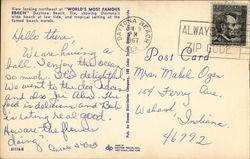 View looking northeast at "WORLD'S MOST FAMOUS
BEACH" Daytona Beach, Fla., showing
wide beach at low tide, and tropical setting of the
Hello there,
We are having a
ball. I enjoy the ocean
so much. It's delightful.
We went to the dog races
and also Jai Alai. The
food is delicious and Bob
is eating real good.
How are the flowers
doing?
DAYTONA BEACH
FLA.
PM
1967
ALWAYS
ZIP CODE
Post Card
Mrs. Mabel Ogan
164 Ferry Ave.
Wabash,
Indiana
46992